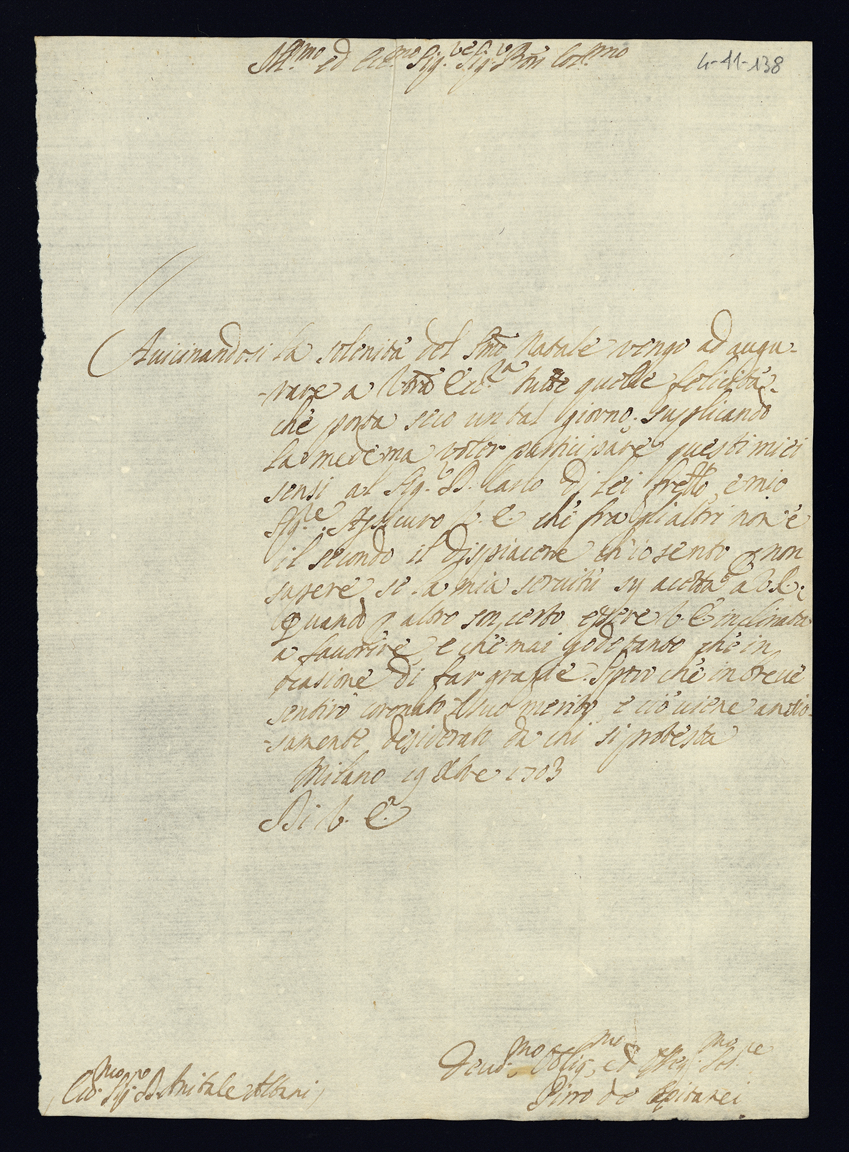 Ill.mo ed Ecc.mo Sig.re Sig.re P.ron Col.mo
4-11-138
Auicinandosi la solenità del S.mo Natale vengo ad augu-
-rare a Vra Ecc.a tutte quelle felicità
che porta seco un tal giorno. suplicando
la medema voler participare questi miei
sensi al Sig.re D. Carlo di lei frello e mio
Sig.re Assicuro V. E. che fra gli altri non è
il secondo il dispiacere ch'io sento p non
sapere se la mia seruitù sij accetta a V. E.
Quando p altro son certo essere V. E. inclinata
a fauorire e che mai gode tanto che in
ocasione di far grasie. Spero che in breue
sentirò coronato il suo merito e ciò uiene ansio-
-samente desiderato da chi si protesta
Milano 19 Xbre 1703
Di V. E.a
Deuo.mo Oblig.mo et Ser.re
Ecc.mo Sig.re D. Anibale Albani
Pirro de Capitanei